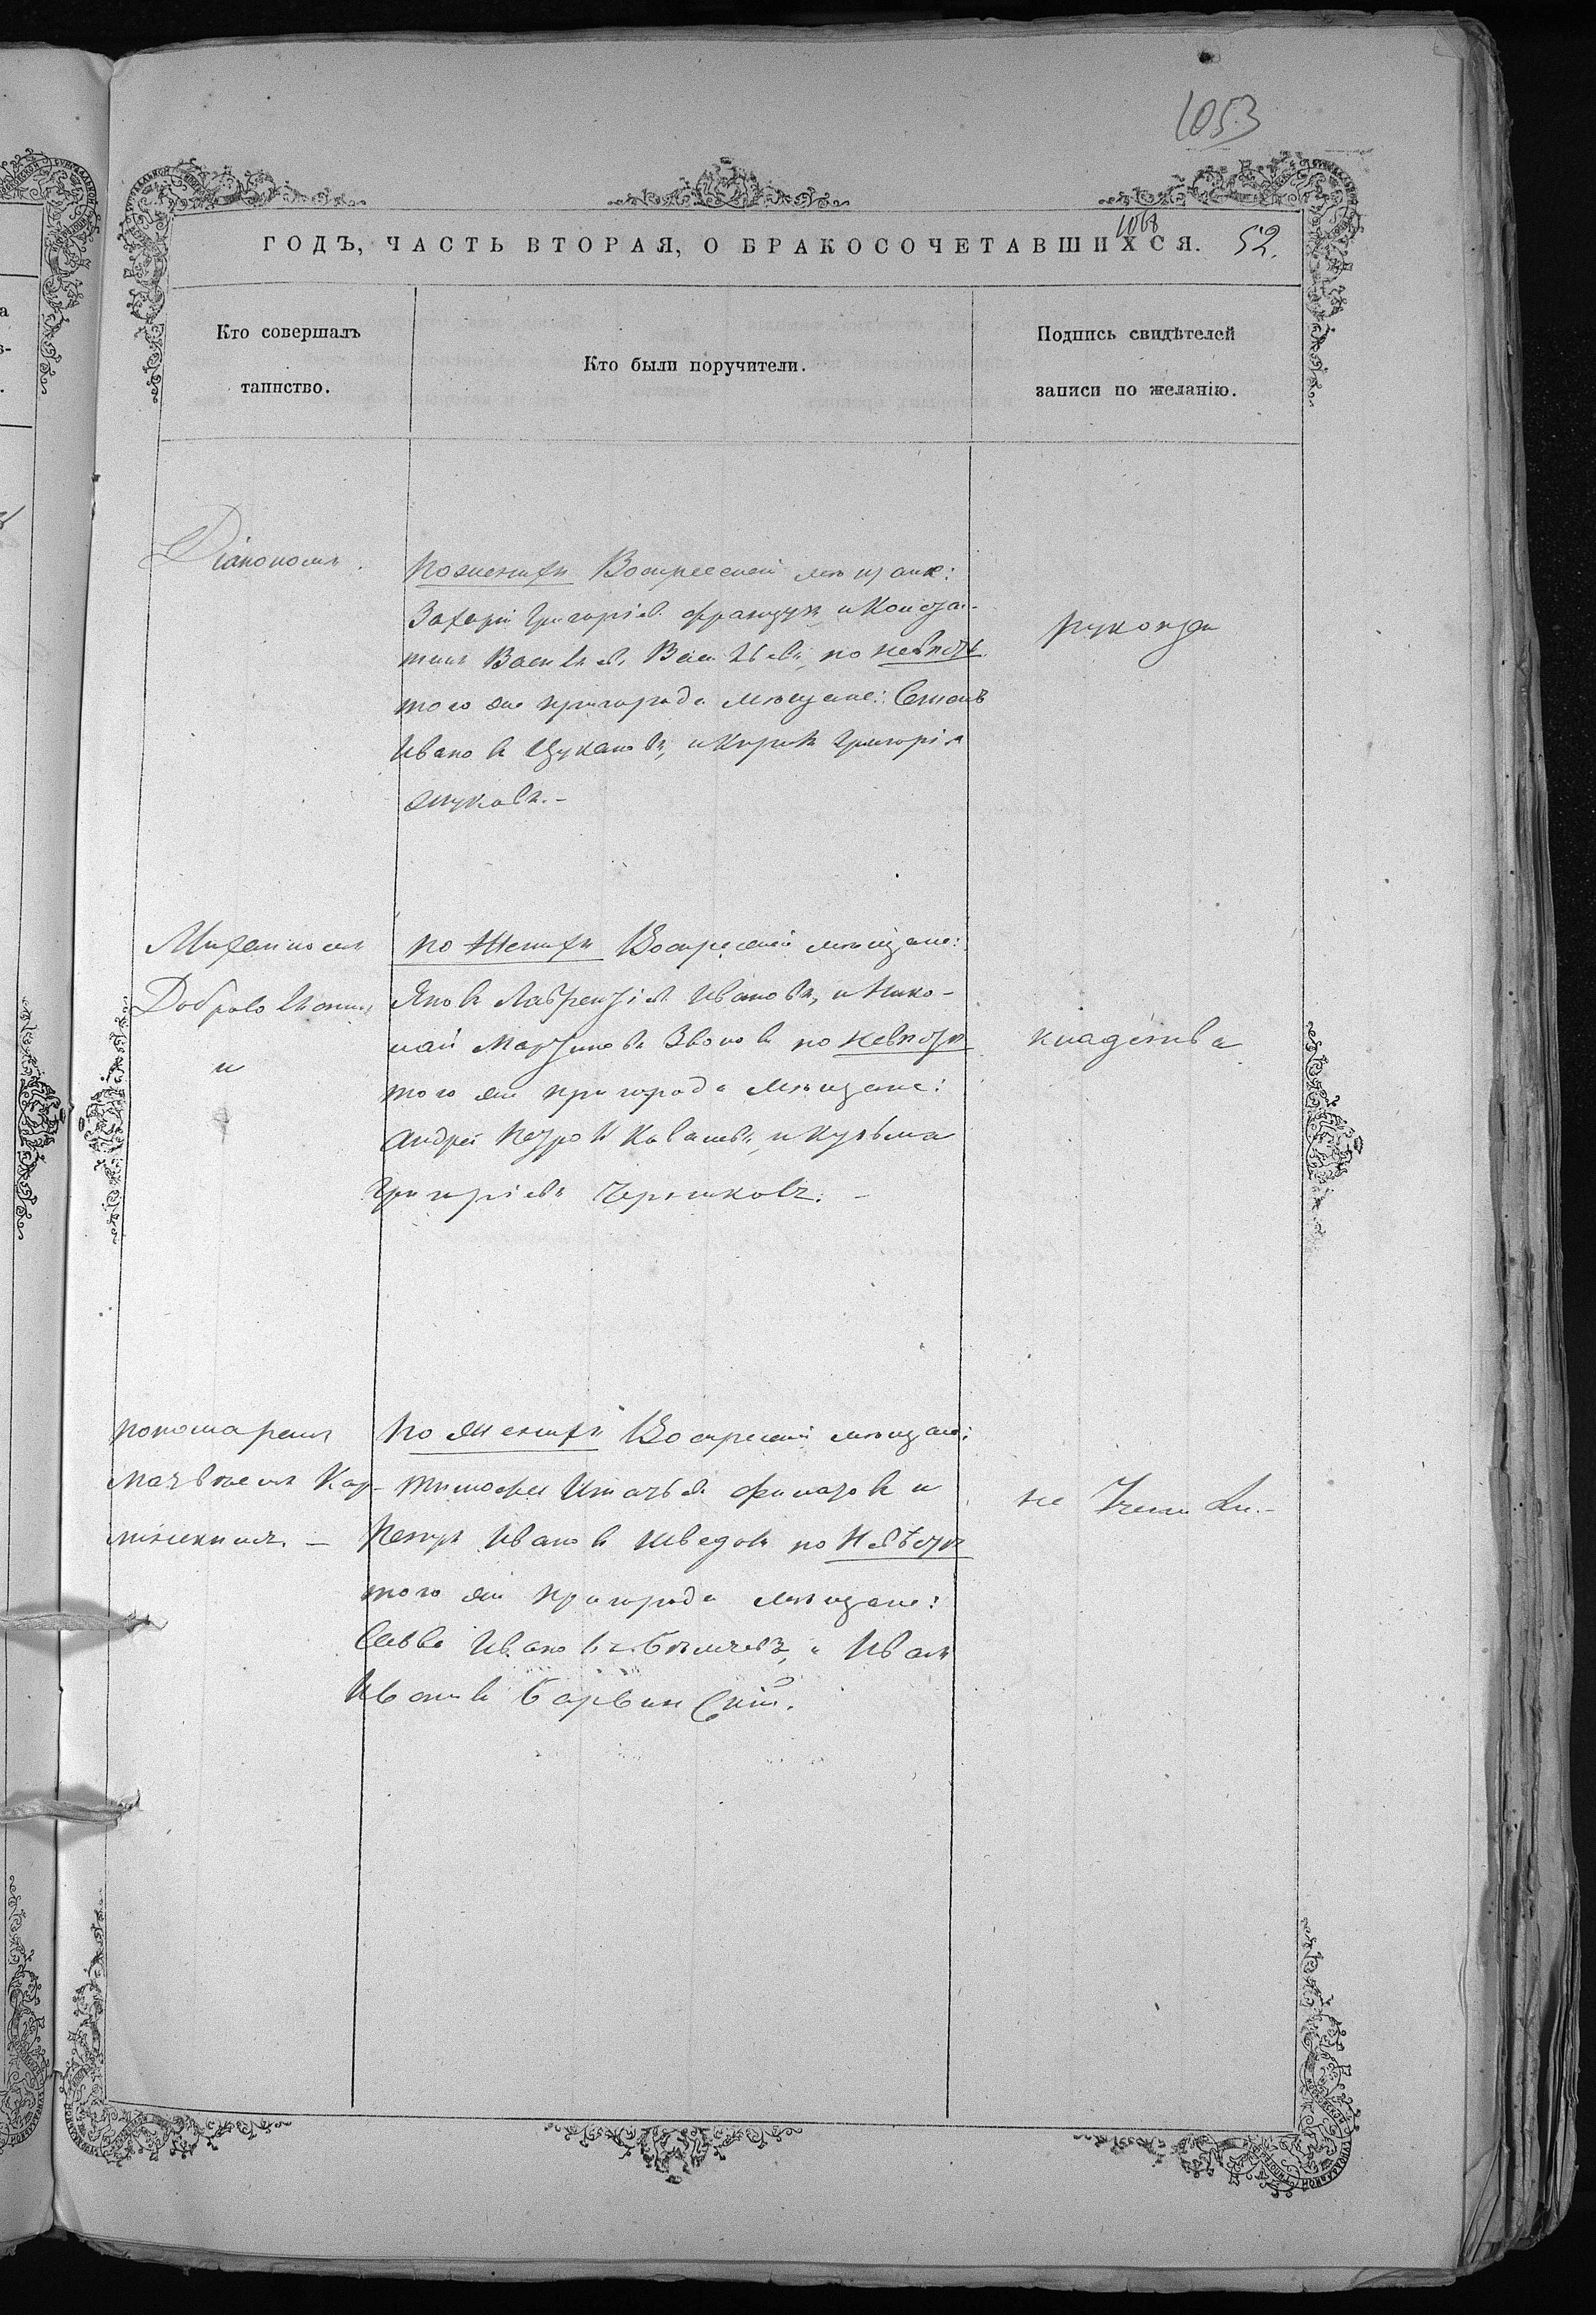 1053
1068
ГОДЪ, ЧАСТЬ ВТОРАЯ, О БРАКОСОЧЕТАВШИХСЯ. 52.
Кто совершалъ
таинство.
Кто были поручители.
Подпись свидѣтелей
записи по желанію.
Діакономъ.
По женихѣ Воскресенскій мѣщане:
Захарій Григоріев. Французъ, и Констан-
тинъ Васильев. Васильевъ, по невѣстѣ
того же пригорода мѣщане: Семенъ
Ивановъ Цукановъ, и Григорія
Жуковъ.-
рукопри
Михаиломъ
и
по женихѣ Воскресенскій мѣщане:
Яковъ Лаврентіев. Ивановъ, и Нико-
лай Мартиновъ Звоновъ по невѣстѣ
того же пригорода мѣщане:
Андрей Петровъ и Кузьма
Григоріевъ Черниковъ. -
кладства
пономаремъ
Матвѣемъ Кар-
По женихѣ Воскресенскій мѣщане:
Тимофей Игнатьев. Филатовъ и
Петръ Ивановъ Шведовъ по Невѣстѣ
того же пригорода мѣщане:
Савва Ивановъ и Иванъ
Ивановъ Барвинскій.
не